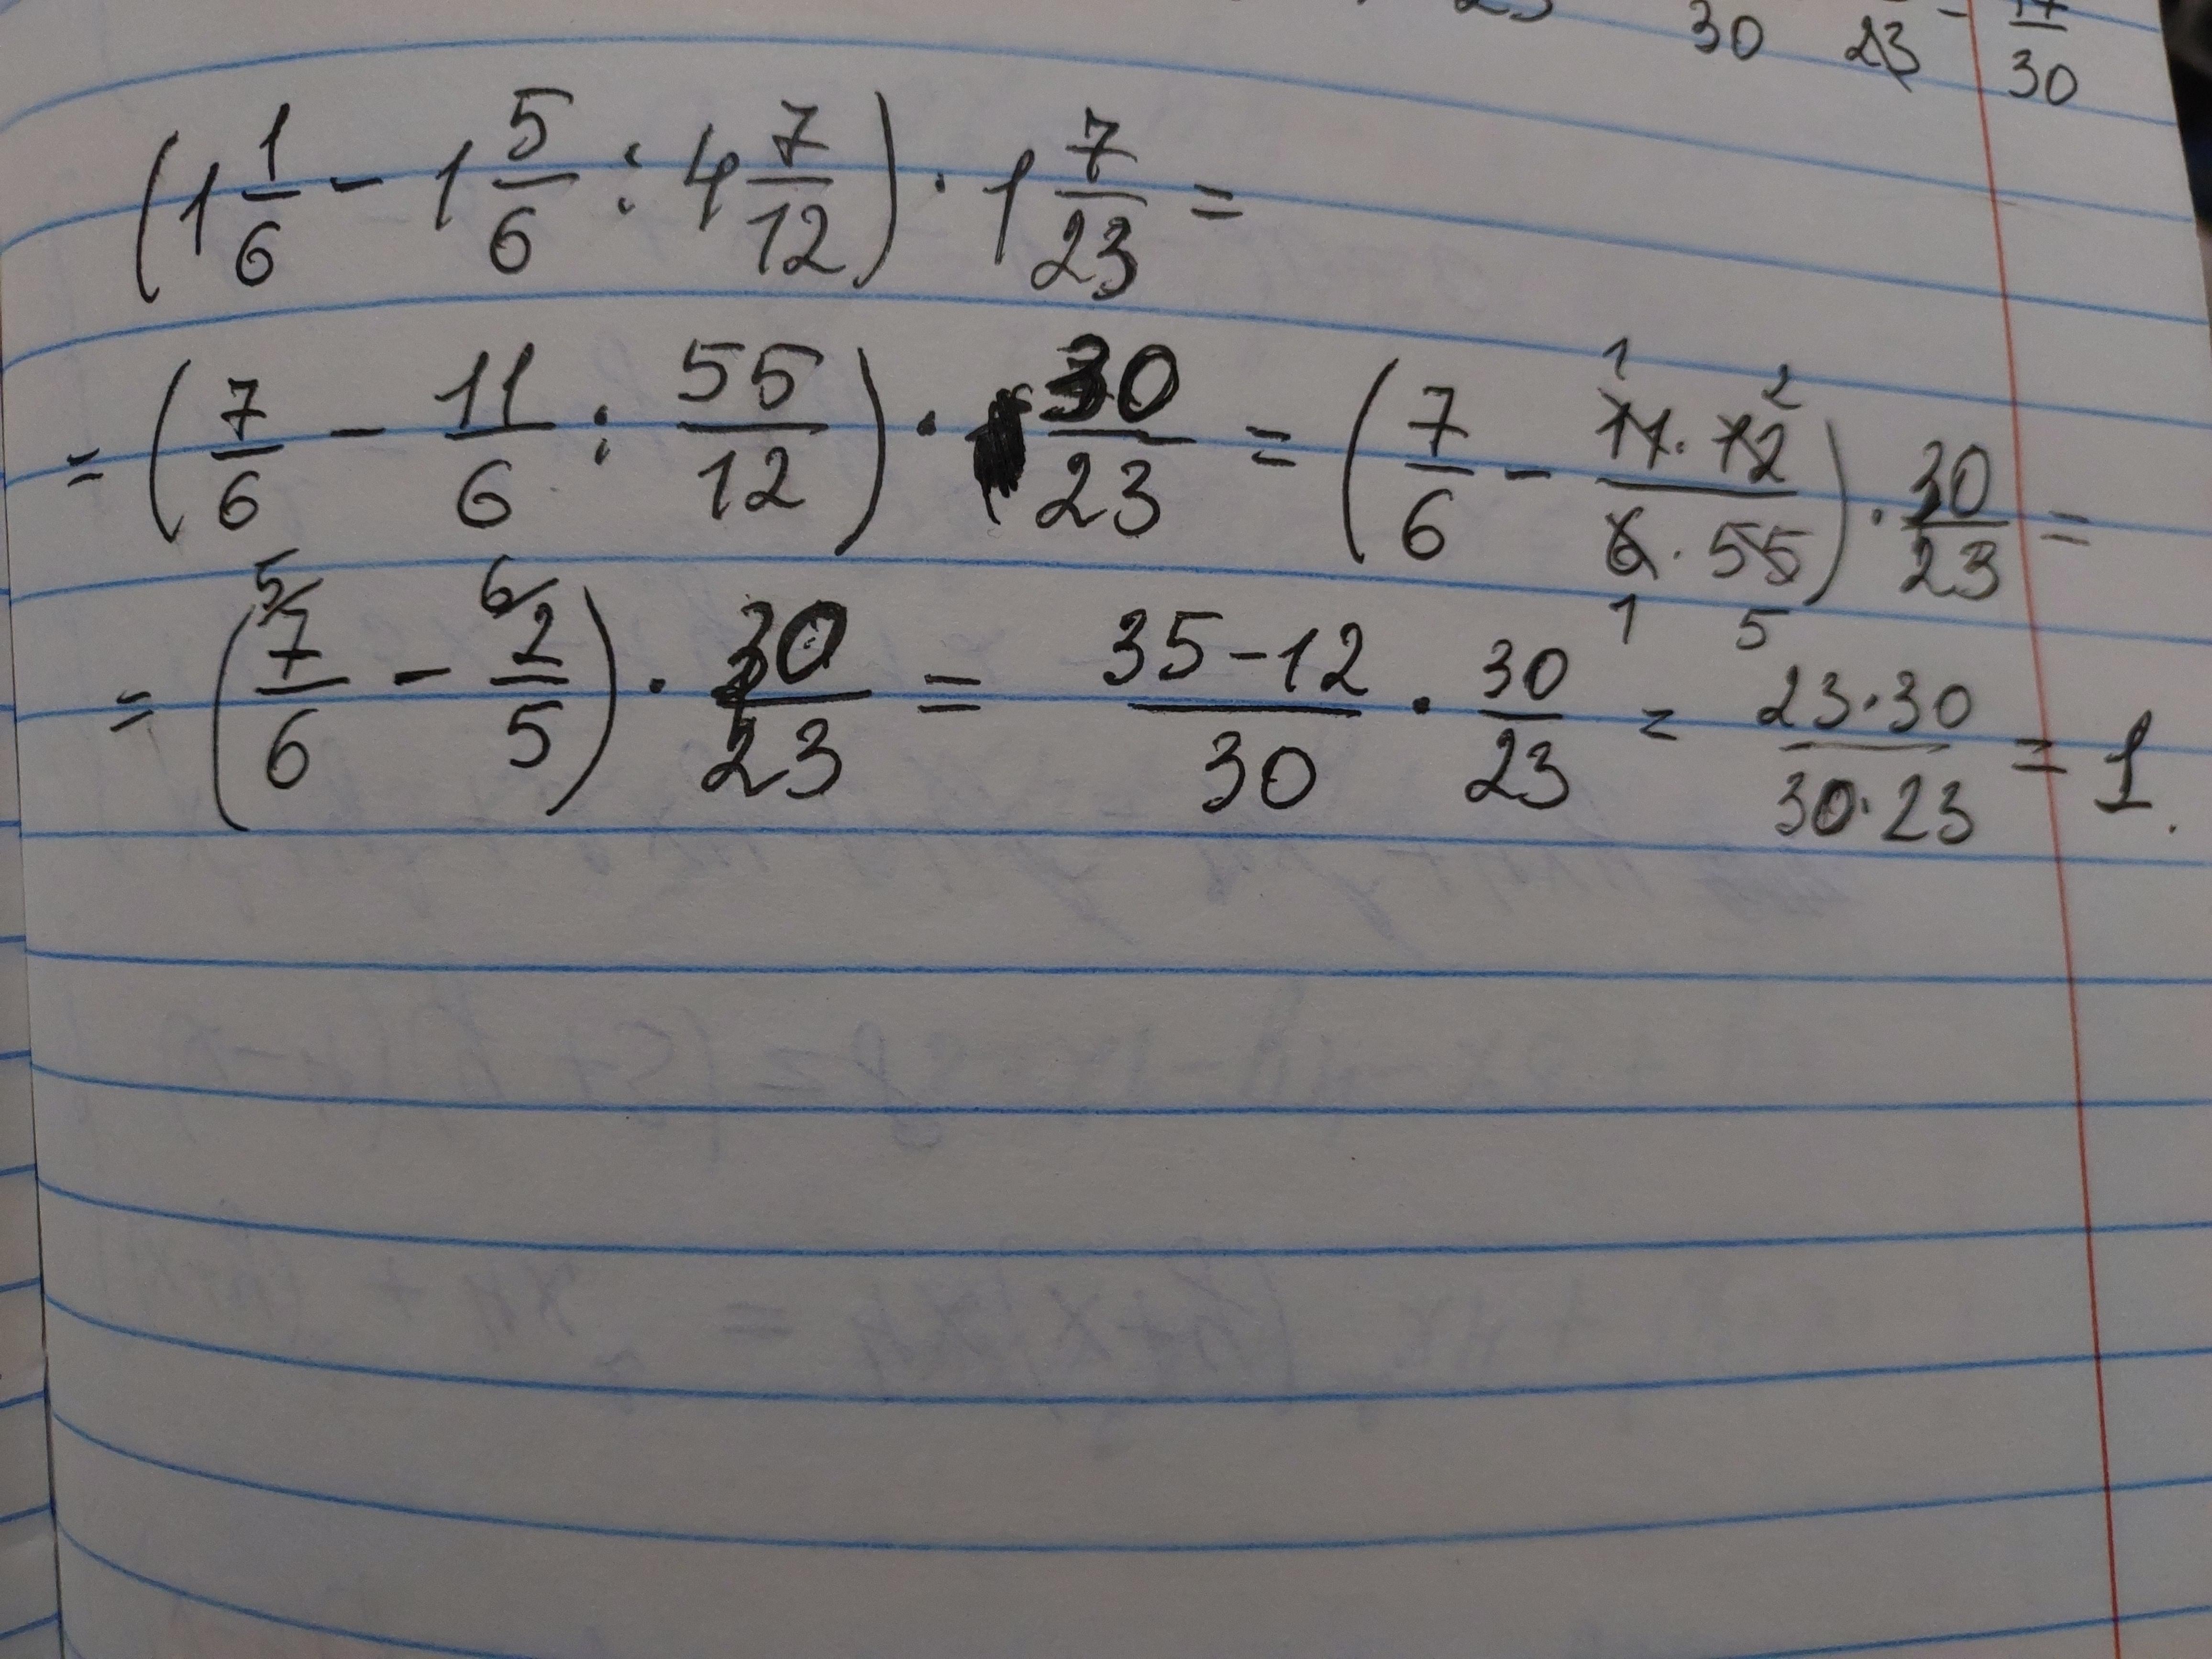 30 23 - 17/30
(1 1/6 - 1 5/6 : 4 7/12) · 1 7/23 =
= (7/6 - 11/6 : 55/12) · 30/23 = (7/6 - 11 · 12 / 6 · 55) · 30/23 =
1 2 1 5
5 6
= (7/6 - 2/5) · 30/23 = 35-12/30 · 30/23 = 23·30/30·23 = 1.